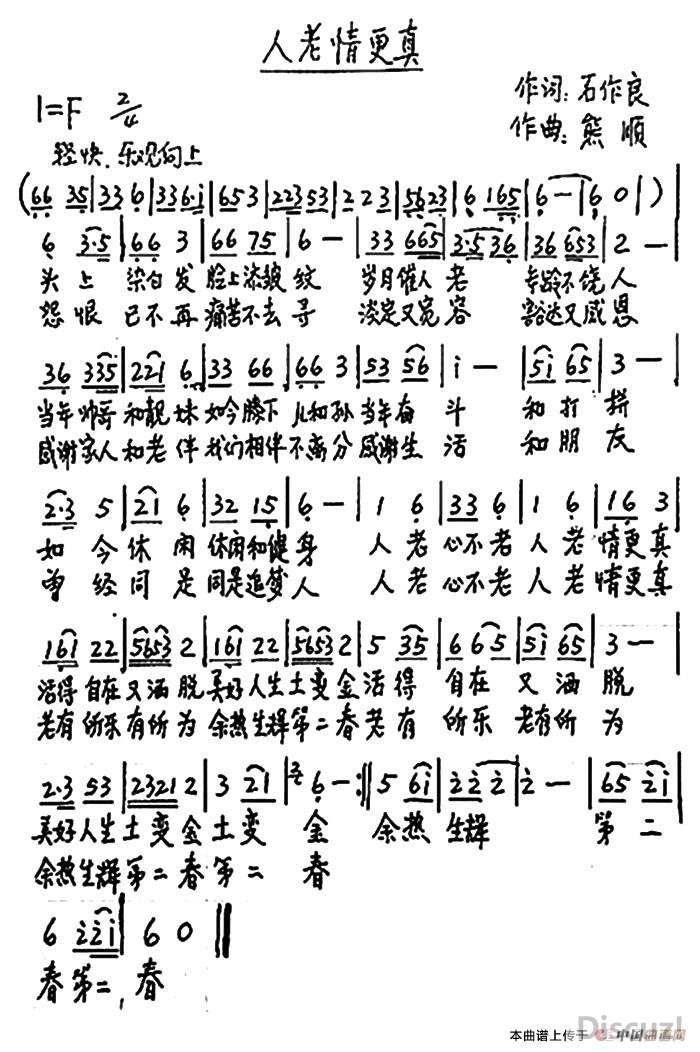 人老情更真
作词:石作良
1=F 2/4
作曲:熊顺
轻快、乐观向上
(66 35|33 6|336·i|653|22353|223|5623|6 165|6 —|6 0|)
6 3·5|66 3|66 75|6 —|33 665|3·536|36 653|2 —|
头上 染白发 脸上添皱纹 岁月催人老 专龄不饶人
怨恨 已不再 痛苦不去寻 淡定又宽容 豁达又感恩
36 335|221 6|33 66|66 3|53 56|i —|5i 65|3 —|
当年帅哥和靓妹如今膝下儿和孙当年奋斗 和打拼
感谢家人和老伴我们相伴不离分感谢生活 和朋友
2·3 5|21 6|32 15|6 —|1 6|33 6|1 6|16 3|
如今休闲休闲和健身 人老心不老人老情更真
曾经同是同是追梦人 人老心不老人老情更真
161 22|5653 2|161 22|5653 2|5 35|6 65|5i 65|3 —|
活得自在又洒脱美好人生土变金活得 自在 又洒脱
老有所乐有所为余热生辉第二春老有 所乐 老有所为
2·3 53|2321 2|3 21|6 —:||5 6i|i2 2 2|2 —|65 2i|
美好人生土变金土变 金 余热生辉 第二
余热生辉第二春第二 春
6 i2i|6 0||
春第二,春
Discuz!
本曲谱上传于 中国曲谱网